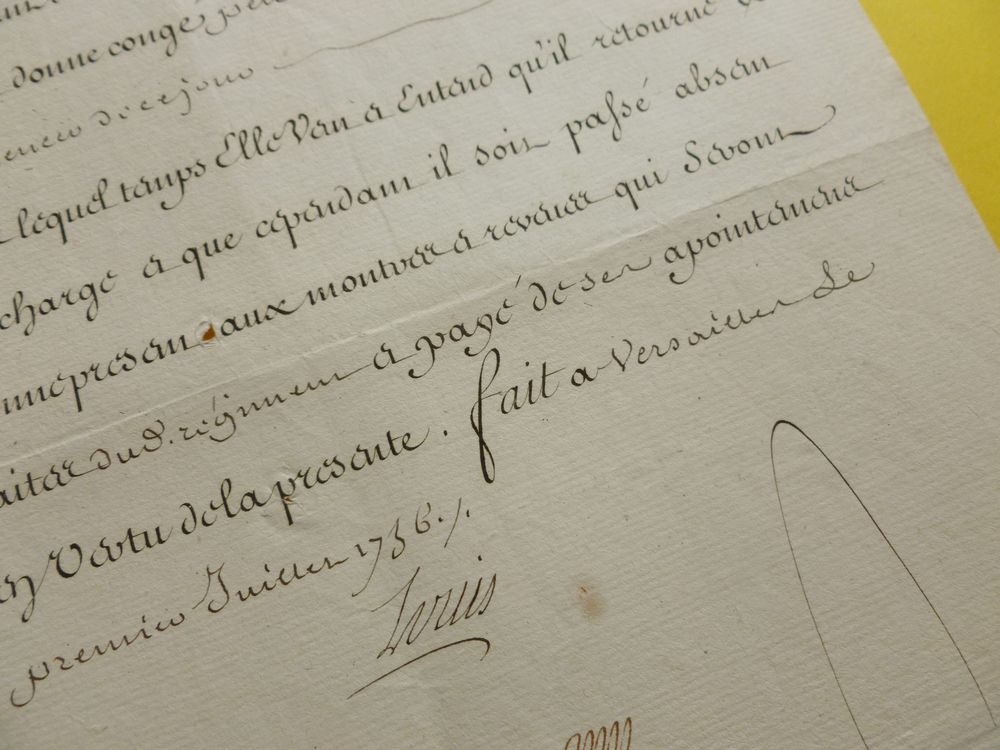 donne congé
de ce jour
lequel temps Elle Veut & Entend qu'il retourne
charge & que cependant il soit passé absent
comme present aux montres & reveues qui Seront
faites dud. régiment & payé de ses apointemens
en Vertu de la presente. fait a Versailles Le
premier Juillet 1736./.
Louis